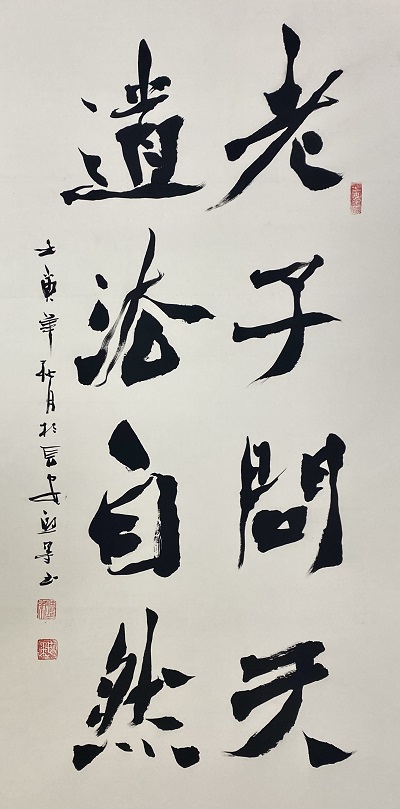 老子問天
遺法自然
壬寅年秋月於長安书